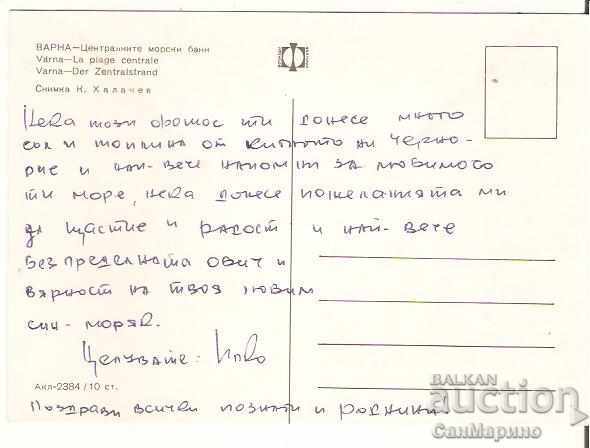 ВАРНА—Централните морски бани
Varna—La plage centrale
Varna—Der Zentralstrand
Снимка К. Халачев
Нека този фотос ти донесе много
сол и топлина от кипното ни Черно-
рие и най-вече напомня за любимото
ти море, нека донесе пожеланията ми
за щастие и радост и най-вече
безпределната обич и
вярност на твоя любим
син- моряк.
Целувате:
Акл-2384/10 ст.
Поздрави всички познати и роднини
BALKAN
auction
СанМарино